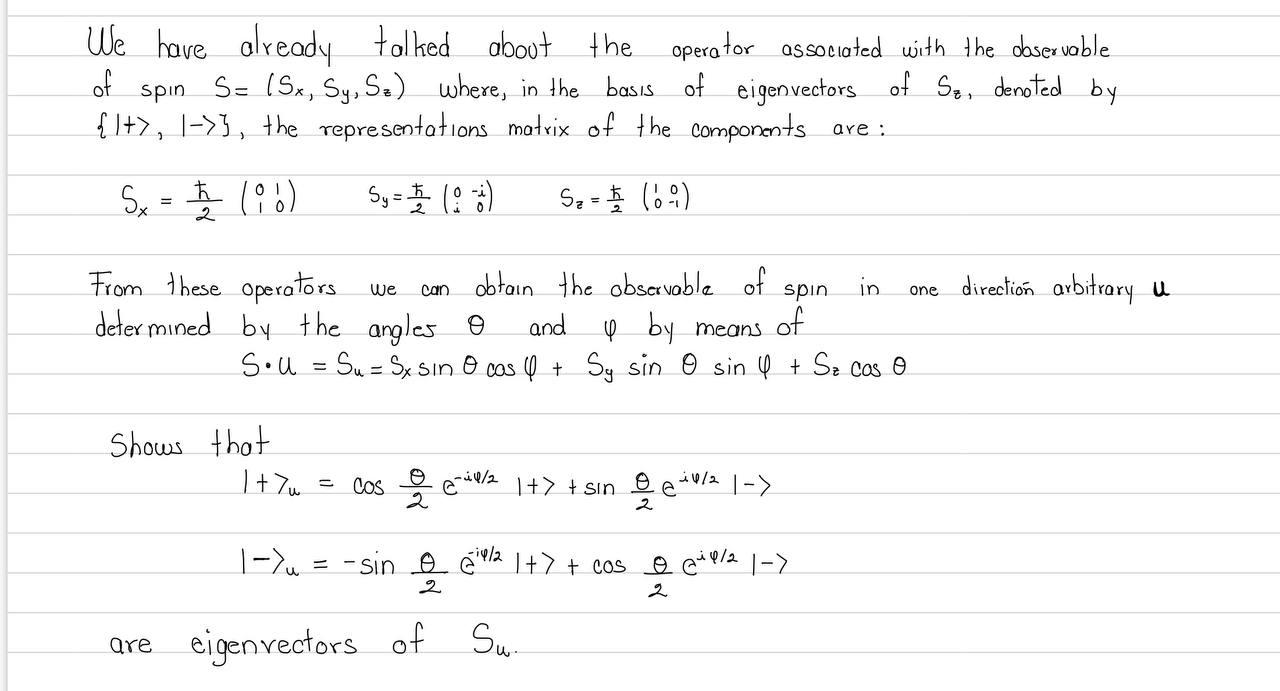 We have already talked about the operator associated with the observable
of spin S= (Sx, Sy, Sz) where, in the basis of eigenvectors of Sz, denoted by
{|+>, |->}, the representations matrix of the components are :
Sx = ħ/2 (0 1 1 0) Sy = ħ/2 (0 -i i 0) Sz = ħ/2 (1 0 0 -1)
From these operators we can obtain the observable of spin in one direction arbitrary u
determined by the angles θ and φ by means of
S•u = Su = Sx sin θ cos φ + Sy sin θ sin φ + Sz cos θ
Shows that
|+>u = cos θ/2 e^-iφ/2 |+> + sin θ/2 e^iφ/2 |->
|->u = -sin θ/2 e^-iφ/2 |+> + cos θ/2 e^iφ/2 |->
are eigenvectors of Su.